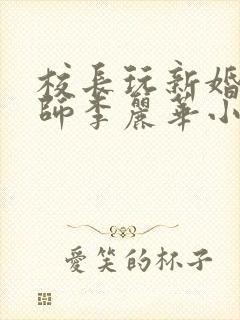 校長玩新婚
師李麗華小
愛笑的杯子